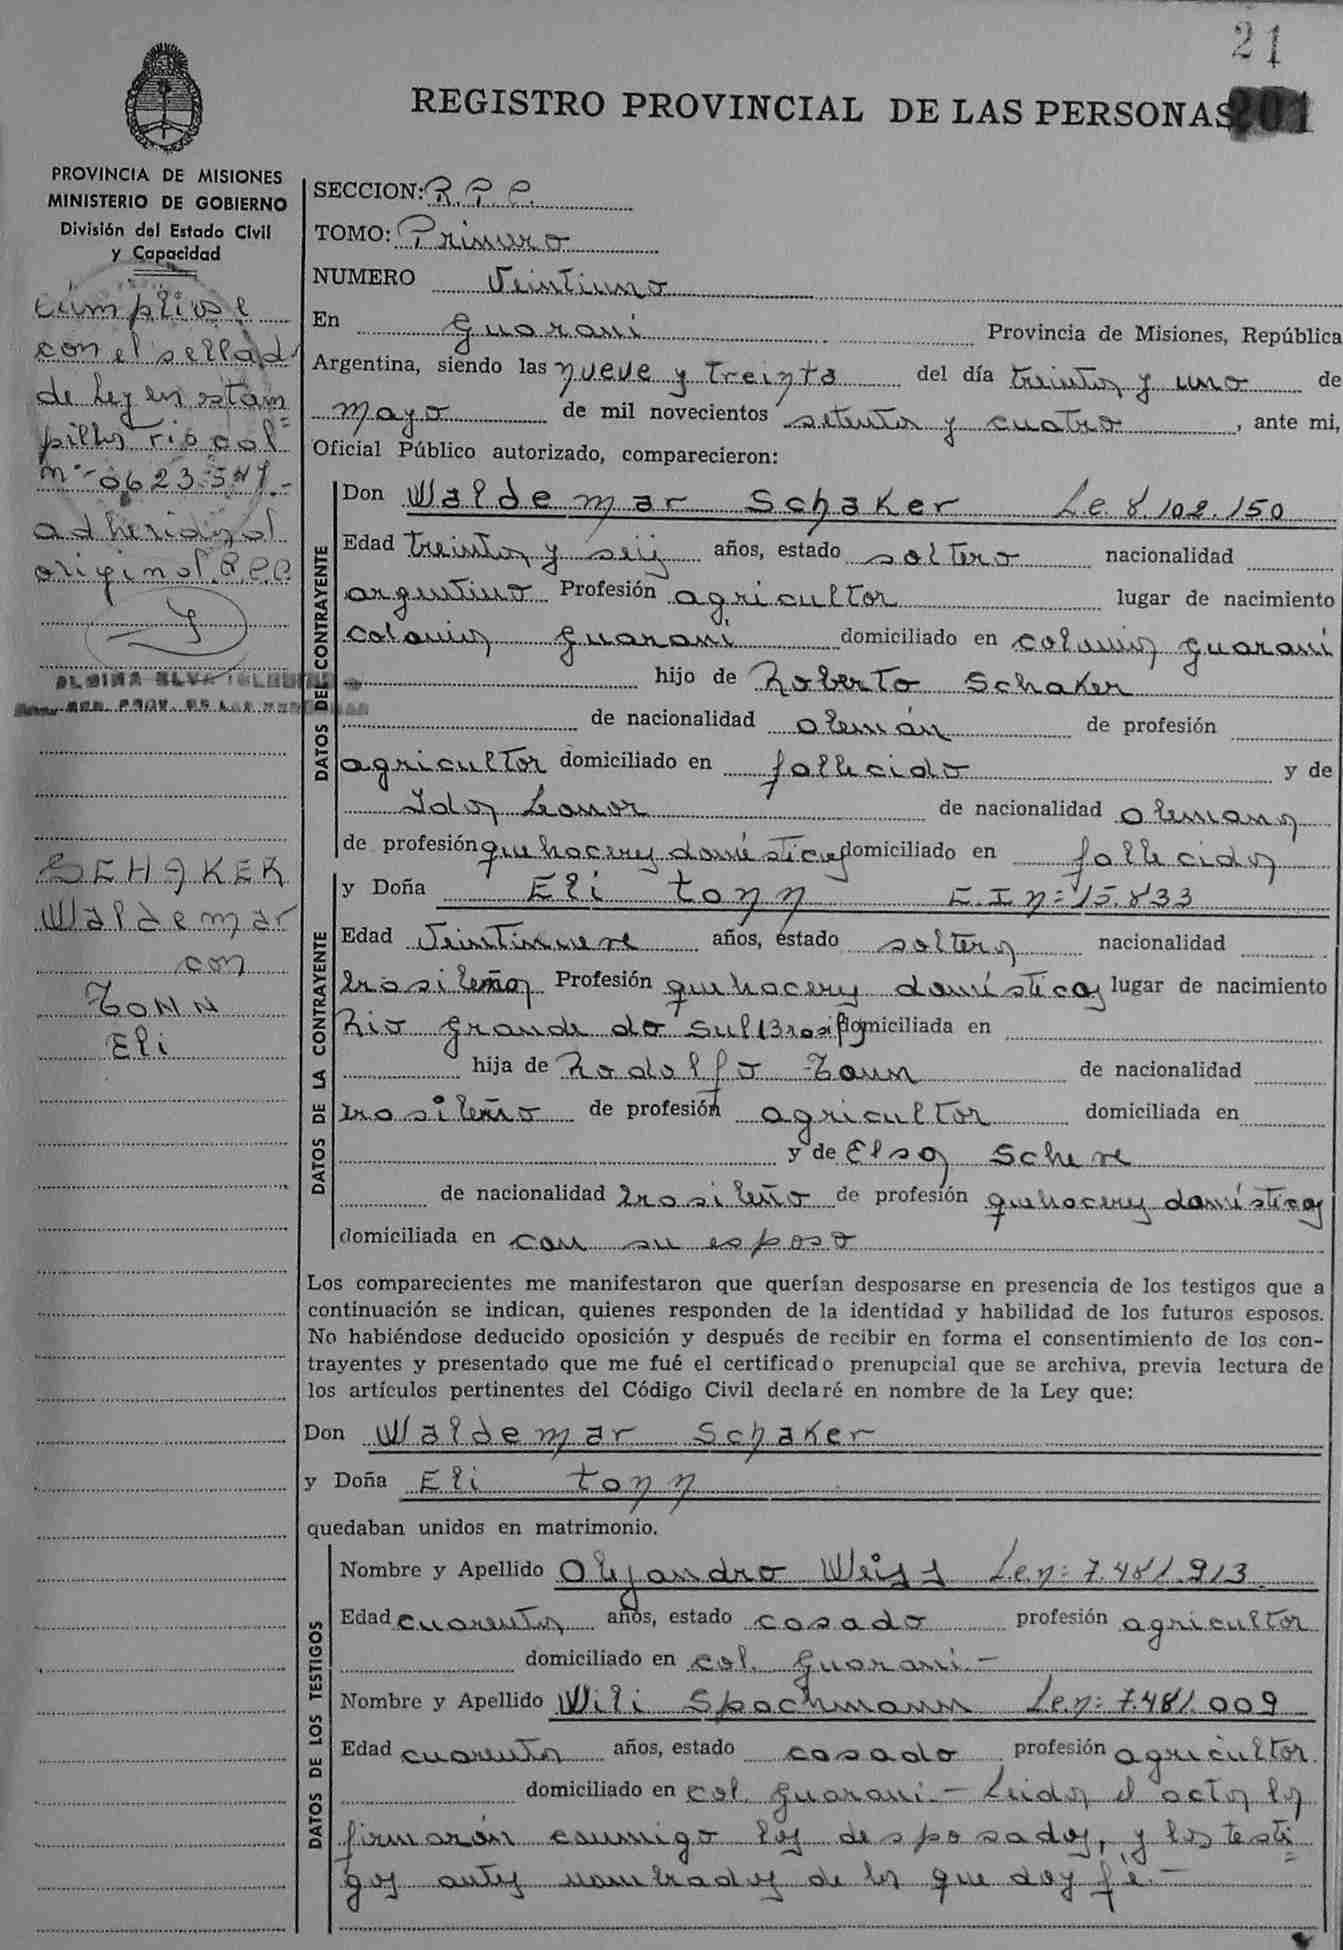 21
REGISTRO PROVINCIAL DE LAS PERSONAS 201
PROVINCIA DE MISIONES
MINISTERIO DE GOBIERNO
División del Estado Civil
y Capacidad
cúmplio el
con el sellad
de Ley en estam
pilla fiscal
nº 0623.541.-
adherida al
original. R.P.C
SCHAKER
Waldemar
con
TONN
Eli
SECCION: R.P.C.
TOMO: Primero
NUMERO Veintiuno
En Guaraní Provincia de Misiones, República
Argentina, siendo las nueve y treinta del día treinta y uno de
mayo de mil novecientos setenta y cuatro, ante mi,
Oficial Público autorizado, comparecieron:
DATOS DEL CONTRAYENTE
Don Waldemar Schaker L.e. 8.102.150
Edad treinta y seis años, estado soltero nacionalidad
argentino Profesión agricultor lugar de nacimiento
Colonia Guaraní domiciliado en colonia Guaraní
hijo de Roberto Schaker
de nacionalidad alemán de profesión
agricultor domiciliado en fallecido y de
Ida Leanor de nacionalidad alemana
de profesión quehaceres domésticos domiciliado en fallecida
DATOS DE LA CONTRAYENTE
y Doña Eli Tonn C.I nº 15.833
Edad Veintinueve años, estado soltera nacionalidad
brasileña Profesión quehaceres domésticos lugar de nacimiento
Rio Grande do Sul (Brasil) domiciliada en
hija de Rodolfo Tonn de nacionalidad
brasileño de profesión agricultor domiciliada en
y de Elsa Schere
de nacionalidad brasileño de profesión quehaceres domésticos
domiciliada en con su esposo
Los comparecientes me manifestaron que querían desposarse en presencia de los testigos que a
continuación se indican, quienes responden de la identidad y habilidad de los futuros esposos.
No habiéndose deducido oposición y después de recibir en forma el consentimiento de los con-
trayentes y presentado que me fué el certificado prenupcial que se archiva, previa lectura de
los artículos pertinentes del Código Civil declaré en nombre de la Ley que:
Don Waldemar Schaker
y Doña Eli Tonn
quedaban unidos en matrimonio.
DATOS DE LOS TESTIGOS
Nombre y Apellido Alejandro Weiss L.e.nº 7.481.913
Edad cuarenta años, estado casado profesión agricultor
domiciliado en col. Guaraní.-
Nombre y Apellido Wili Spachmann L.e.nº 7.481.009
Edad cuarenta años, estado casado profesión agricultor.
domiciliado en col. Guaraní.- Leida el acta la
firmarón conmigo los desposados, y los testi
gos antes nombrados de lo que doy fé.-